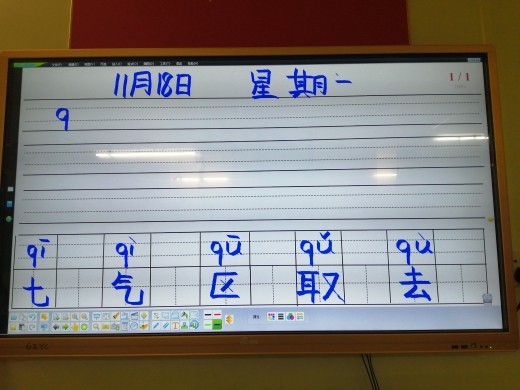 11月18日 星期一
1/1
q
qī qì qū qǔ qù
七 气 区 取 去